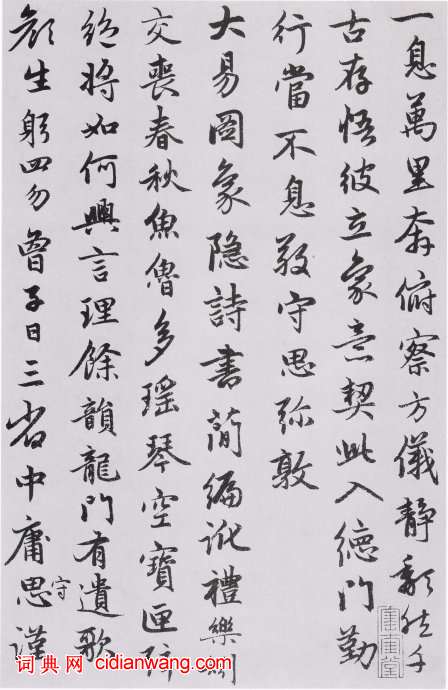 一息萬里奔俯察方儀靜頽然千
古存悟彼立象意契此入德門勤
行當不息敬守思弥敦
大易圖象隐詩書簡編訛禮樂矧
交喪春秋魚魯多瑶琴空寶匣弦
絶將如何興言理餘韻龍門有遺歌
顔生躬四勿曾子日三省中庸思謹
守
词典网 cidianwang.com